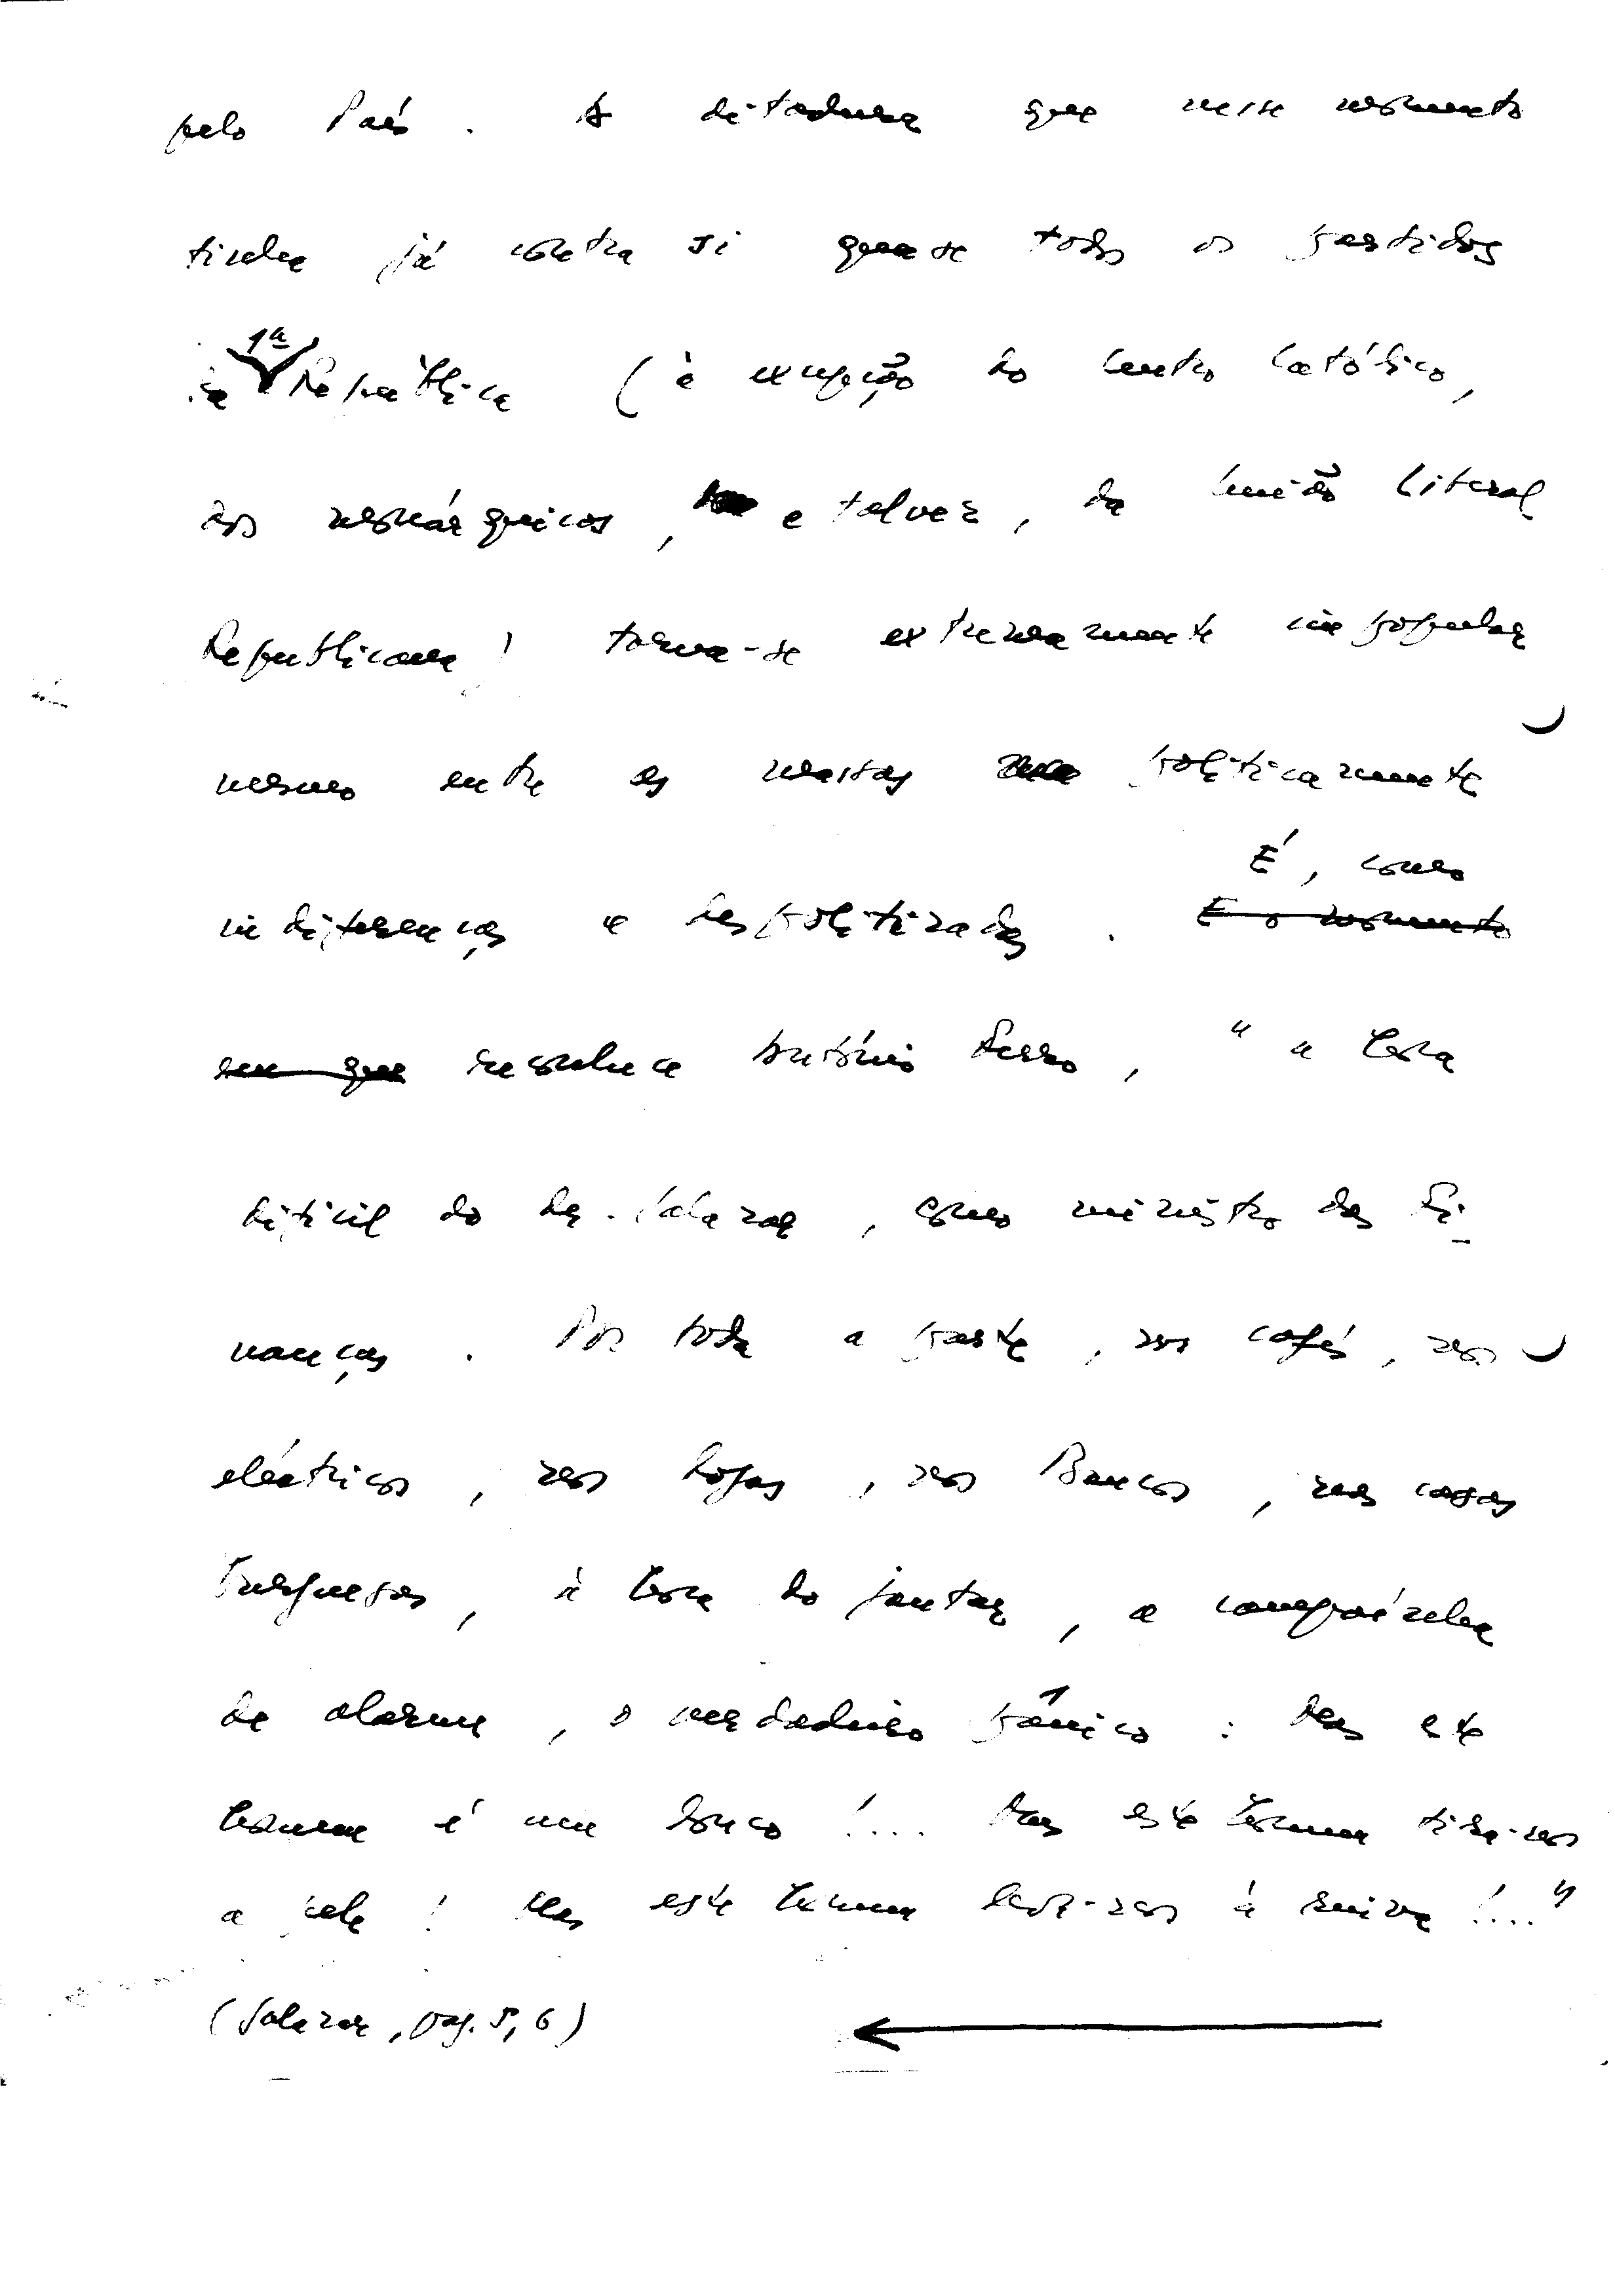 pelo País. A ditadura que nesse momento
tinha já contra si quase todos os partidos
da 1ª República (à excepção do Centro Católico,
dos monárquicos, e talvez, da União Liberal
Republicana) torna-se extremamente impopular
mesmo entre as massas politicamente
indiferenças e despolitizadas. É, como
E o momento
em que reconhece António Ferro, "a hora
difícil do Dr. Salazar, como ministro das Fi-
nanças. Por toda a parte, nos cafés, nos
eléctricos, nas lojas, nos Bancos, nas casas
burguesas, à hora do jantar, a campainha
de alarme, o verdadeiro pânico: Mas este
homem é um louco!... Mas este homem tira-nos
a pele! Mas este homem leva-nos à ruína!..."
(Salazar, pag. 5, 6)